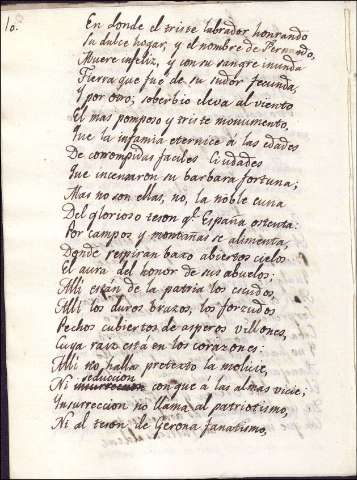 10.
En donde el triste labrador honrando
Su dulce hogar, y el nombre de Fernando,
Muere infeliz, y con su sangre inunda
Tierra que fue de su sudor fecunda,
Y por otro, soberbio eleva al viento
El mas pomposo y triste monumento.
Que la infamia eternice a las edades
De corrompidas faciles Ciudades
Que incensaron su barbara fortuna;
Mas no son ellas, no, la noble cuna
Del glorioso teson q.e España ostenta:
Por campos y montañas se alimenta,
Donde respiran baxo abiertos cielos
El aura del honor de sus abuelos;
Alli estan de la patria los escudos,
Alli los duros brazos, los forzudos
Pechos cubiertos de asperos vellones,
Cuya raiz está en los corazones:
Alli no halla pretexto la molicie,
seduccion
Ni insurreccion con que a las almas vicie;
Insurreccion no llama al patriotismo,
Ni al teson de Gerona fanatismo,